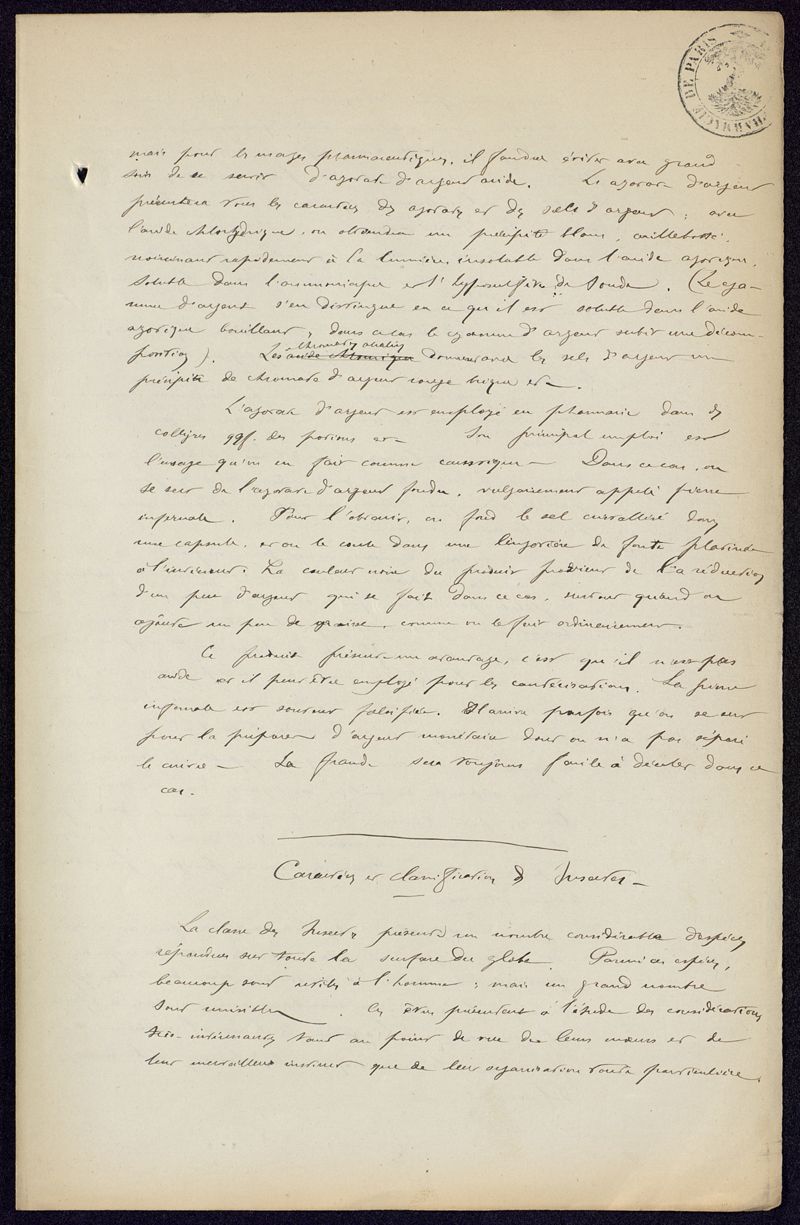 PHARMACIE DE PARIS
mais pour les usages pharmaceutiques, il faudra éviter avec grand
soin de se servir d'azotate d'argent acide. Le azotate d'argent
présentera tous les caractères des azotates et des sels d'argent ; avec
l'acide chlorhydrique, on obtiendra un précipité blanc, caillebotté,
noircissant rapidement à la lumière, insoluble dans l'acide azotique,
soluble dans l'ammoniaque et l'hyposulfite de soude. (Le cya-
nure d'argent s'en distingue en ce qu'il est soluble dans l'acide
azotique bouillant, dans ce cas le cyanure d'argent subit une décom-
position). Les chromates alcalins donnent avec les sels d'argent un
précipité de chromate d'argent rouge brique etc.
L'azotate d'argent est employé en pharmacie dans des
collyres qqf. des potions etc. Son principal emploi est
l'usage qu'on en fait comme caustique — Dans ce cas, on
se sert de l'azotate d'argent fondu, vulgairement appelé pierre
infernale. Pour l'obtenir, on fond le sel cristallisé dans
une capsule, et on le coule dans une lingotière de fonte platinée
à l'intérieur. La couleur noire du produit provient de la réduction
d'un peu d'argent qui se fait dans ce cas, surtout quand on
ajoute un peu de graisse, comme on le fait ordinairement.
Ce produit présente un avantage, c'est qu'il n'est pas
acide et il peut être employé pour les cautérisations. La pierre
infernale est souvent falsifiée. Il arrive parfois qu'on se sert
pour la préparer d'argent monétaire dont on n'a pas séparé
le cuivre — La fraude sera toujours facile à déceler dans ce
cas.
Caractères et classification des Insectes —
La classe des Insectes présente un nombre considérable d'espèces
répandues sur toute la surface du globe. Parmi ces espèces,
beaucoup sont utiles à l'homme ; mais un grand nombre
sont nuisibles. Ces êtres présentent à l'étude des considérations
très-intéressantes tant au point de vue de leurs mœurs et de
leur merveilleux instinct que de leur organisation toute particulière.